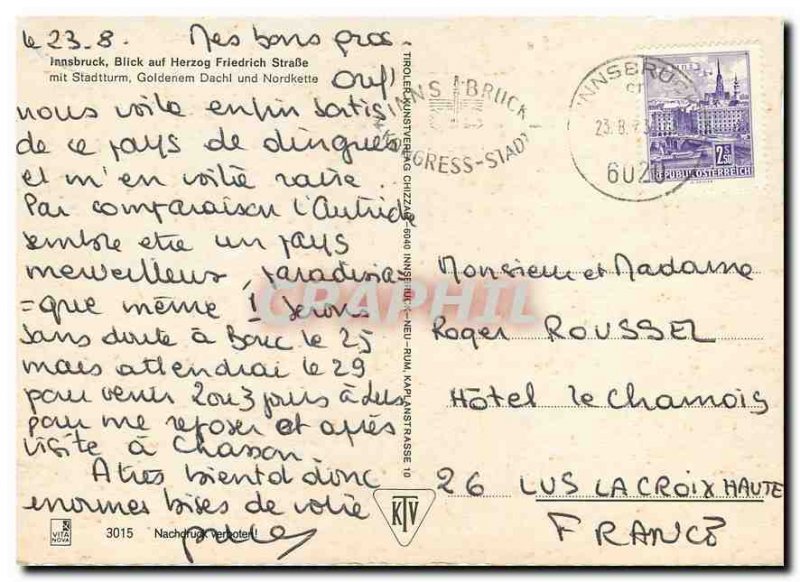 le 23.8. Mes bons gros
Innsbruck, Blick auf Herzog Friedrich Straße
mit Stadtturm, Goldenem Dachl und Nordkette
Ouf!
nous voilà enfin sortis
de ce pays de dingues
et m'en voilà ravie.
Par comparaison l'Autriche
semble être un pays
merveilleux, paradisia-
=que même! Serons
sans doute à Bourc le 25
mais attendrai le 29
pour venir 2 ou 3 jours à Lus
pour me reposer et après
visite à Chasson.
A très bientôt donc
enormes bises de votre
VITA NOVA
3015 Nachdruck verboten!
TIROLER KUNSTVERLAG CHIZZALI - 6040 INNSBRUCK-NEU-RUM, KAPLANSTRASSE 10
KTV
INNSBRUCK
KONGRESS-STADT
INNSBRU
23.8.
6020
2.50
REPUBLIK ÖSTERREICH
CRAPHIL
Monsieur et Madame
Roger ROUSSEL
Hôtel le Chamois
26 LUS LA CROIX HAUTE
FRANCE